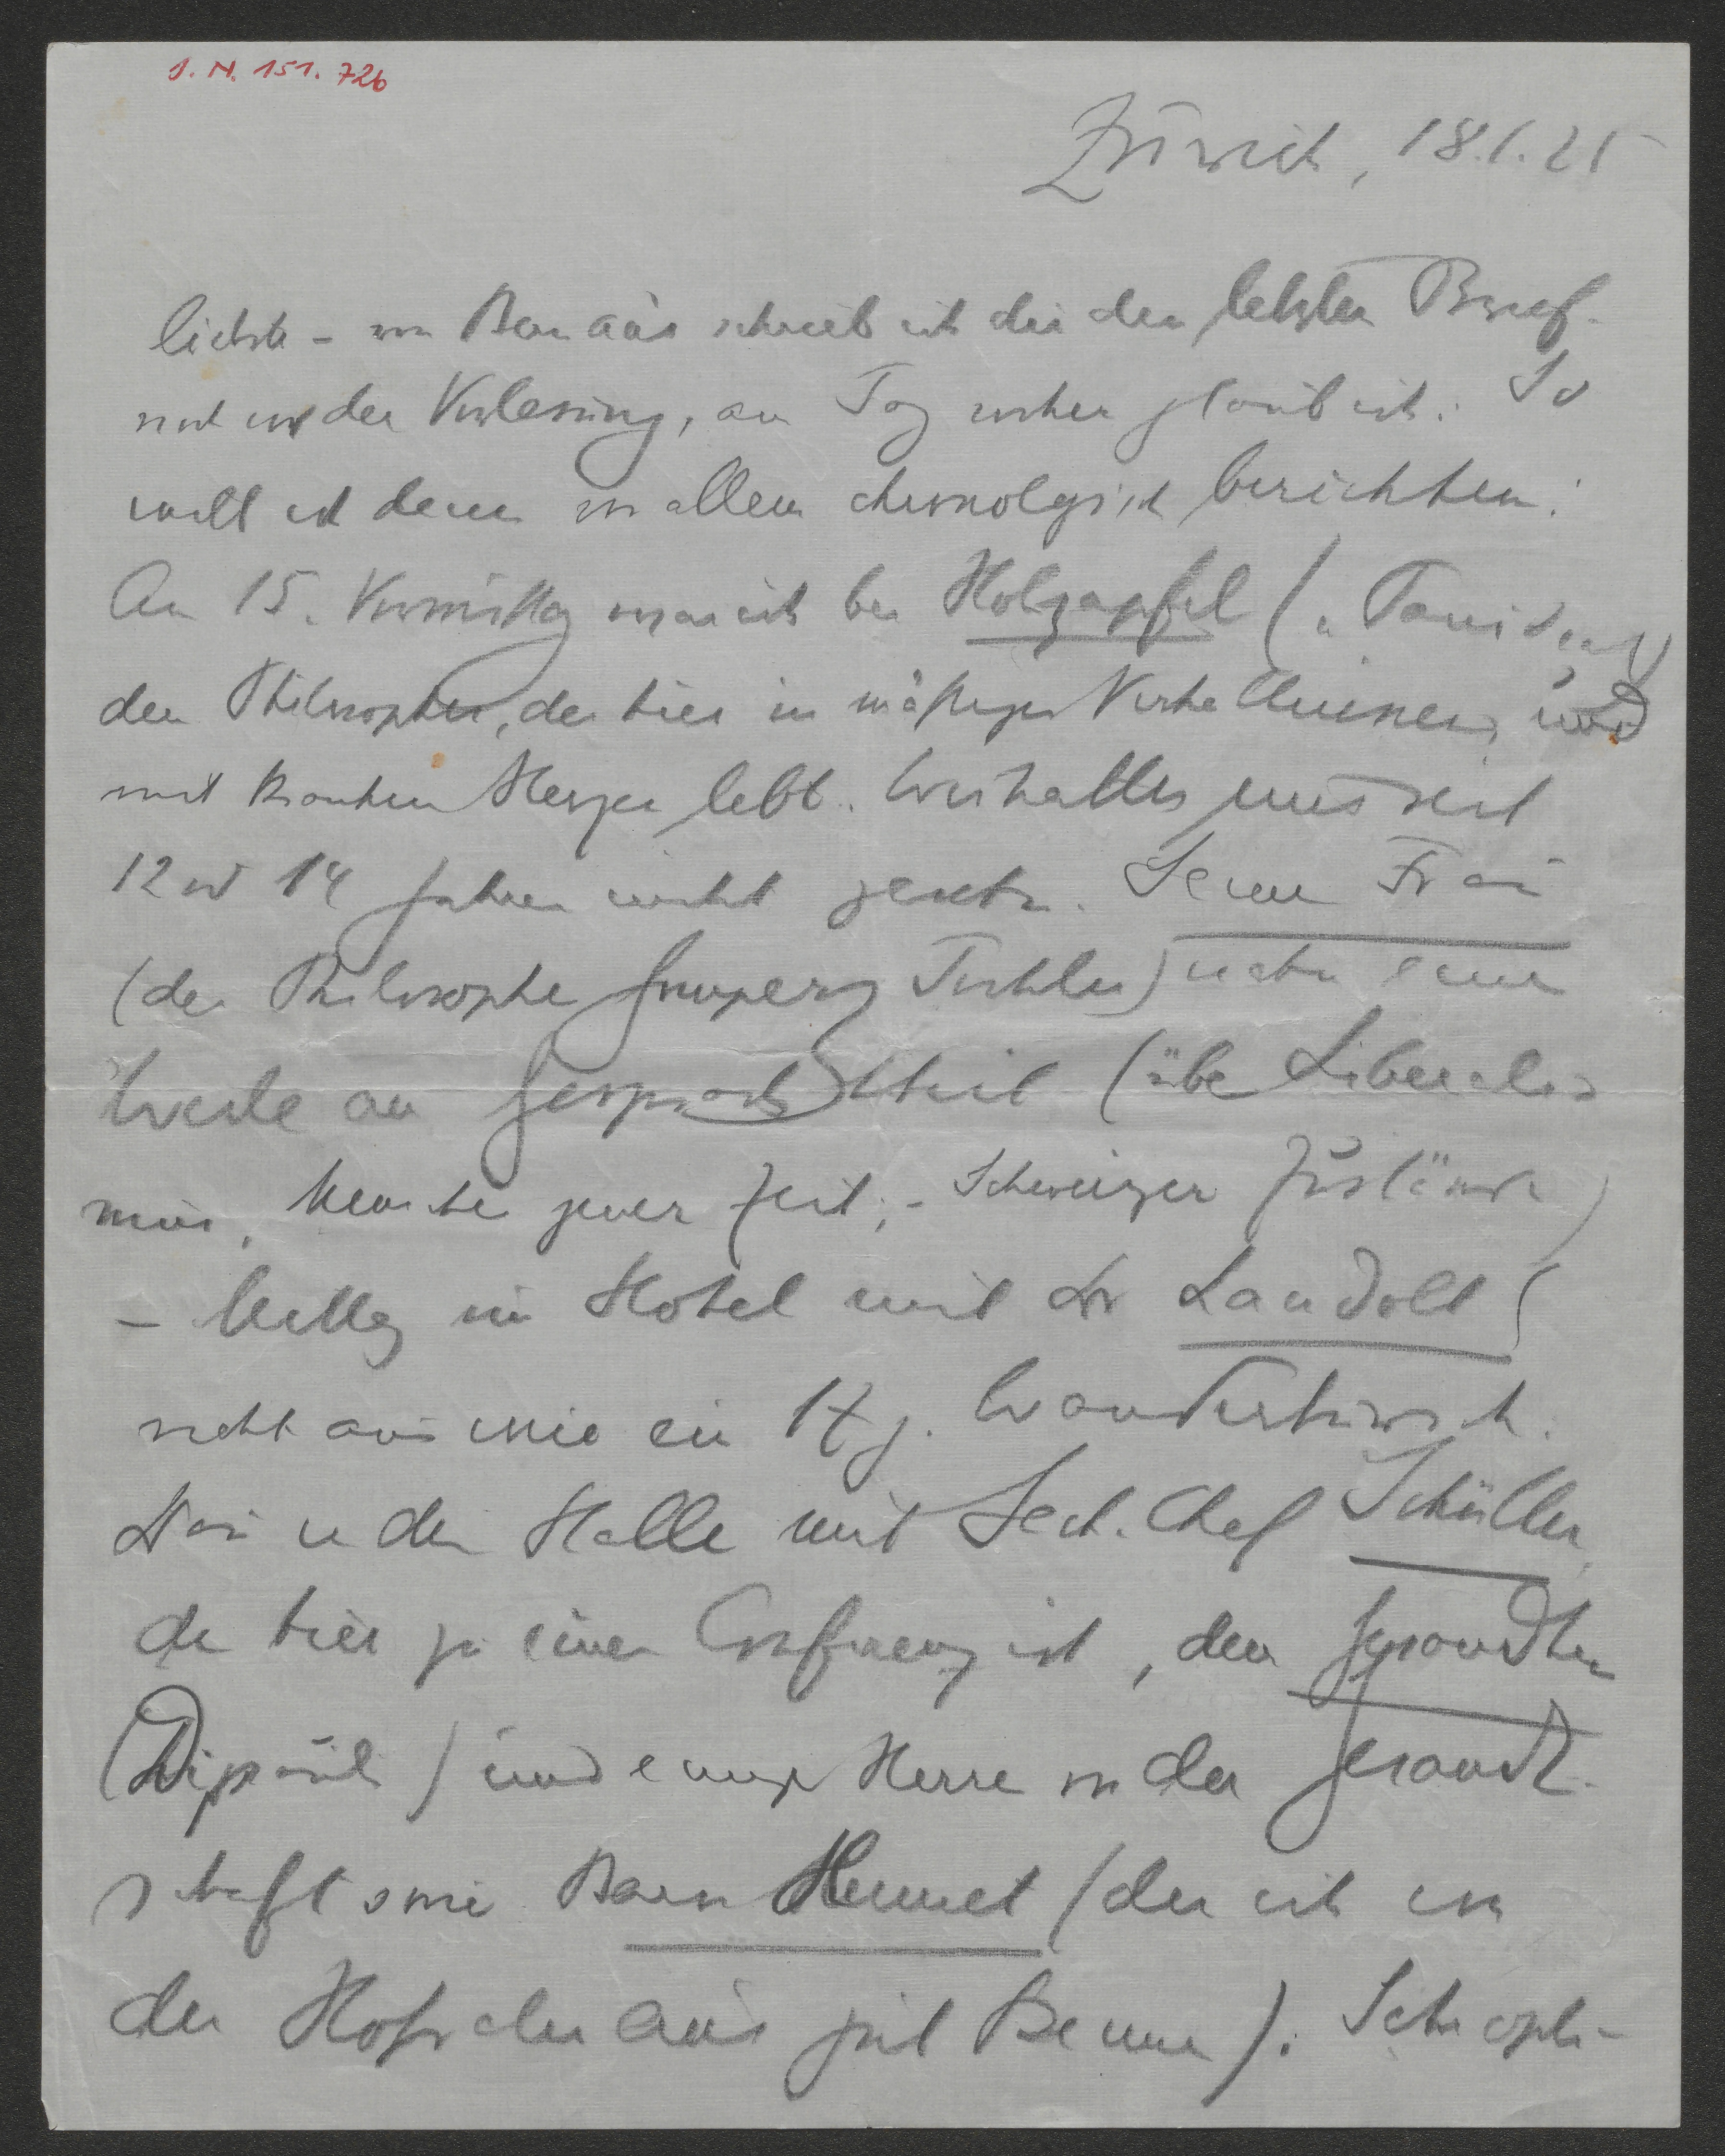 I. N. 151.726
Zürich, 18.1.25
liebste – von Bern aus schrieb ich dir den letzten Brief.
noch vor der Vorlesung, am Tag vorher glaub ich. So
will ich denn vor allem chronologisch berichten:
Am 15. Vormittag war ich bei Holzapfel („Panideal“)
dem Philosophen, der hier in mäßigen Verhältnissen und
mit krankem Herzen lebt. Wir hatten uns seit
12 od 14 Jahren nicht gesehn. Seine Frau
(der Philosophe Gomperz Tochter) nahm eine
Weile am Gespräch theil (über Liberalis
mus, Menschen jener Zeit; – Schweizer Zustände)
– Mittag im Hotel mit Dr Landolt (
sieht aus wie ein 17j. Wanderbursch.
Dann in der Halle mit Sect. Chef Schüller,
der hier zu einer Conferenz ist, dem Gesandten
(Dipauli) und einige Herren von der Gesandt-
schaft sowie Baron Hennet (den ich von
der Hofr aus gut kenne).